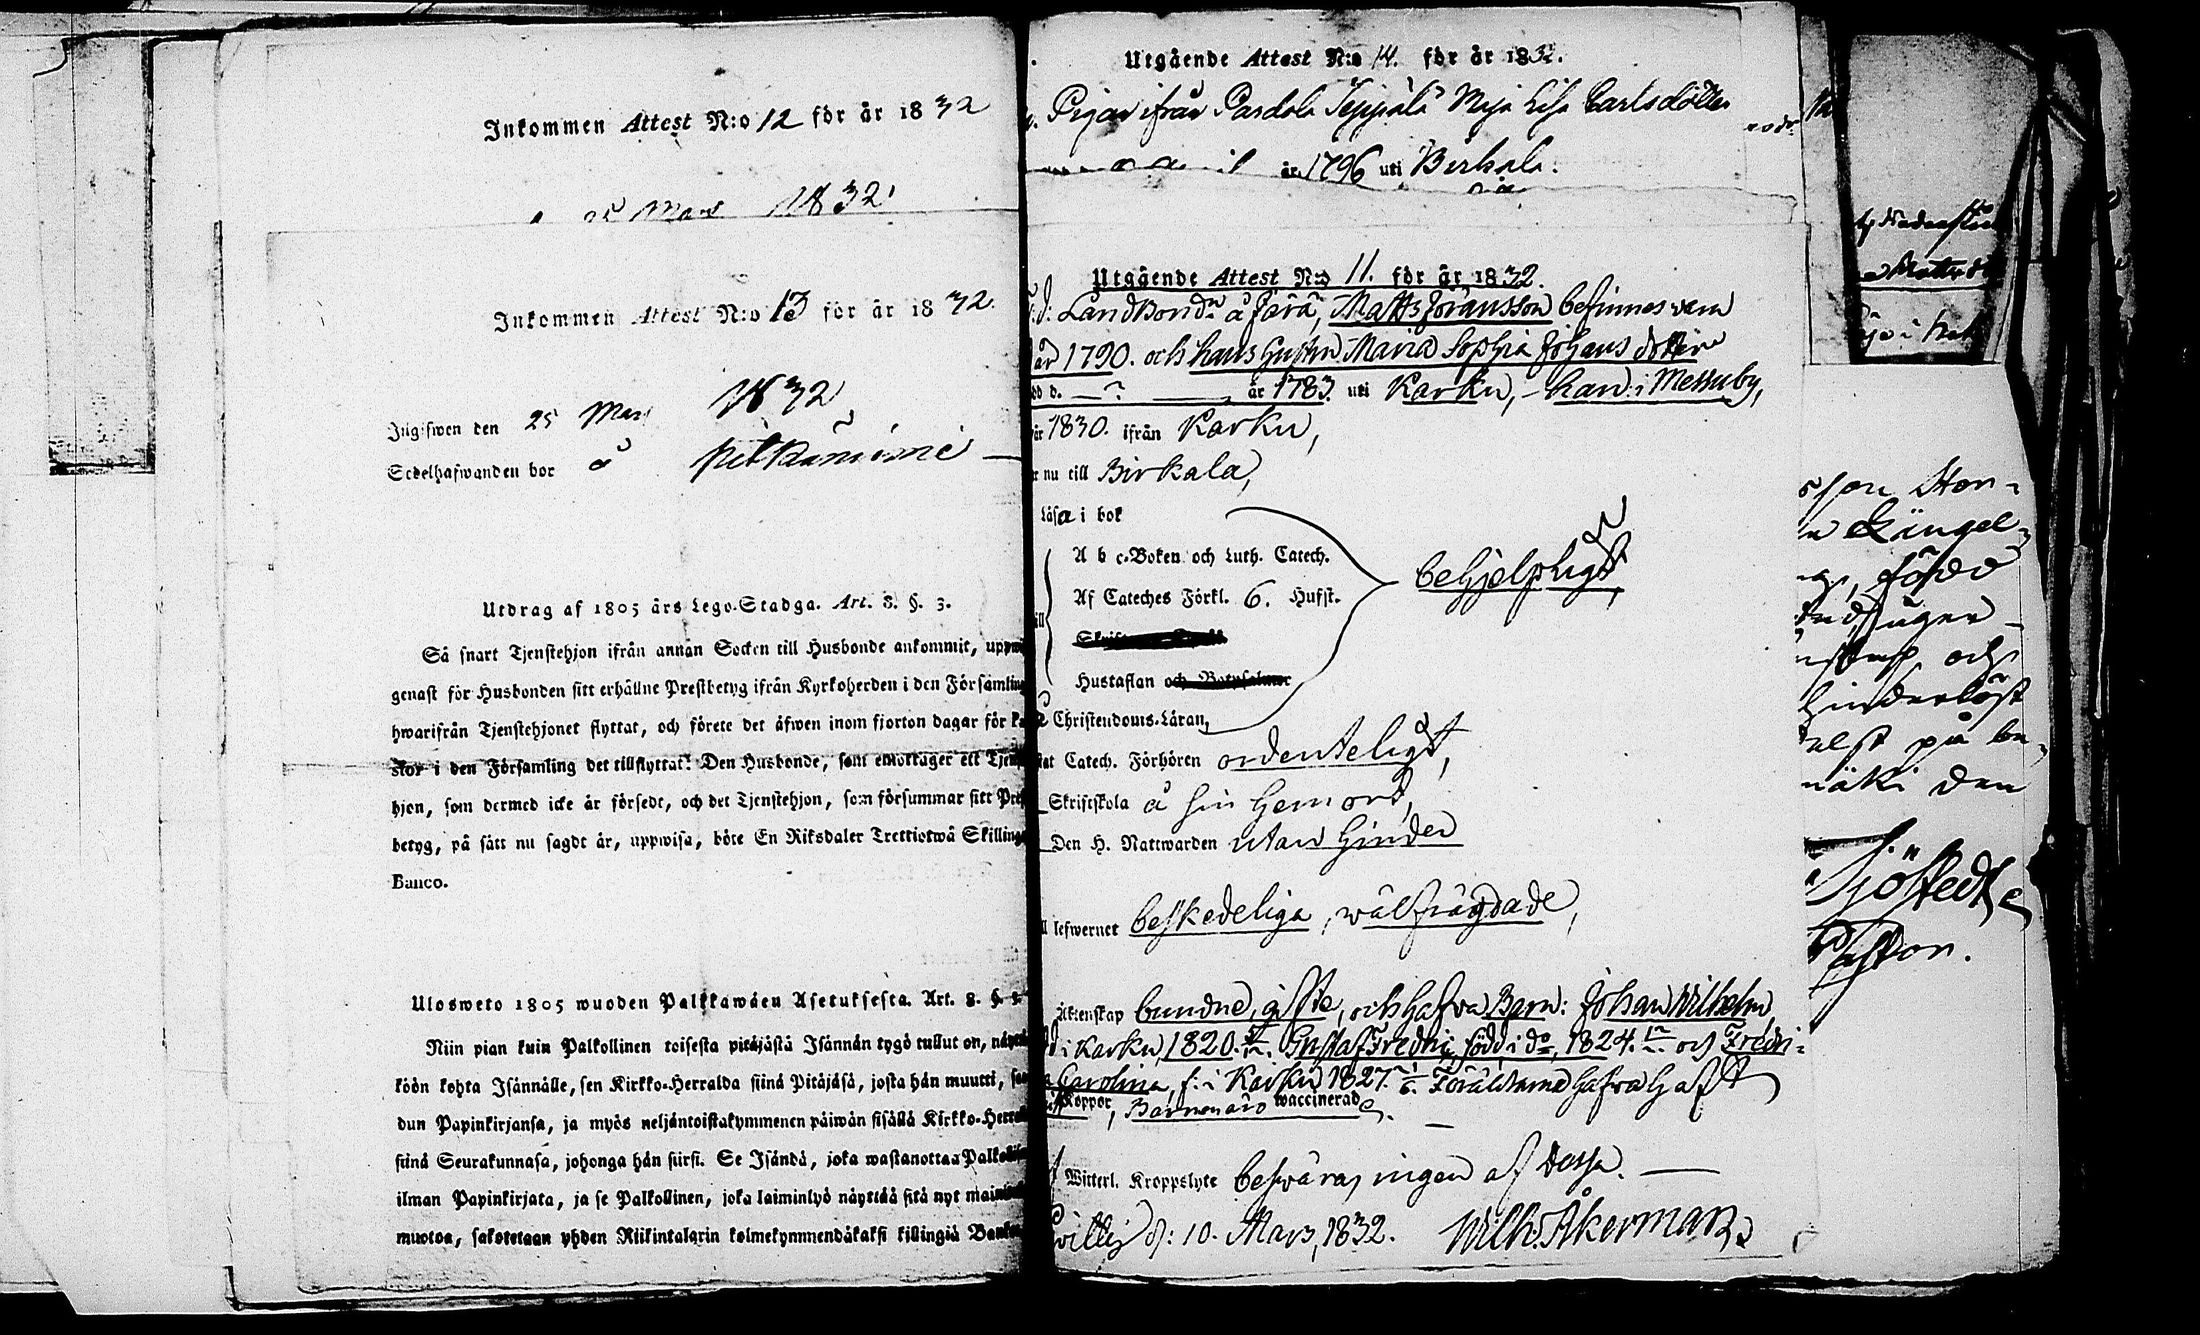 Inkommen Attest N:o 12 för år 1832
25 Mars 1832
Inkommen Attest N:o 13 för år 1832.
Ingifwen den 25 Mars 1832
Sedelhafwanden bor å Pitkäniemi
Utdrag af 1805 års Lego-Stadga. Art. 8. §. 3.
Så snart Tjenstehjon ifrån annan Socken till Husbonde ankommit, uppwi
genast för Husbonden sitt erhållne Prestbetyg ifrån Kyrkoherden i den Församling
hwarifrån Tjenstehjonet flyttat, och förete det äfwen inom fjorton dagar för Pa
stor i den Församling det tillflyttat. Den Husbonde, som emottager ett Tjenste
hjon, som dermed icke är försedt, och det Tjenstehjon, som försummar sitt Prest
betyg, på sätt nu sagdt är, uppwisa, böte En Riksdaler Trettiotwå Skillingar
Banco.
Ulosweto 1805 wuoden Palkkawäen Asetuksesta. Art. 8. §. 3.
Niin pian kuin Palkollinen toisesta pitäjästä Isännän tygö tullut on, näyttä
köön kohta Isännälle, sen Kirkko-Herralda siinä Pitäjäsä, josta hän muutti, saa
dun Papinkirjansa, ja myös neljäntoistakymmenen päiwän sisällä Kirkko-Herra
siinä Seurakunnasa, johonga hän siirsi. Se Isändä, joka wastanottaa Palkollisen
ilman Papinkirjata, ja se Palkollinen, joka laiminlyö näyttää sitä nyt mainitu
muotoa, sakotetaan yhden Riikintalarin kolmekymmendäkaksi killingiä Banko
Utgående Attest N:o 14. för år 1832.
Pigan ifrån Pardola Seppälä Maja Lisa Carlsdotter
år 1796 uti Birkala.
Utgående Attest N:o 11. för år 1832.
f. d. LandBonden å Järä, Matts Göransson befinnes vara
år 1790. och hans Hustru Maria Sophia Johans dotter
dd d. — ? — år 1783 uti Karku, – han i Messuby,
år 1830. ifrån Karku,
r nu till Birkala,
Läsa i bok
A b c-Boken och Luth. Catech.
Af Cateches Förkl. 6. Hufst.
behjelpligt,
Hustaflan och Botpsalmer
Christendoms-Läran,
Catech. Förhören ordenteligt,
Skriftskola å sin hemort,
Den H. Nattwarden utan hinder
lefwernet beskedeliga, wälfrägdade,
Äktenskap bundne, gifte, och hafva Barn: Johan Wilhelm,
i Karku, 1820. Gustaf Fredric, född i do, 1824. och Fredri-
ca Carolina, f: i Karku 1827. Föräldrarne hafva haft
Koppor, Barnen äro waccinerade.
Witterl. Kroppslyte besväras ingen af dessa. —
d: 10. Mars, 1832. Wilh. Åkerman
född
och
hinderlöst
på be-
den
Sjöstedt
Pastor.